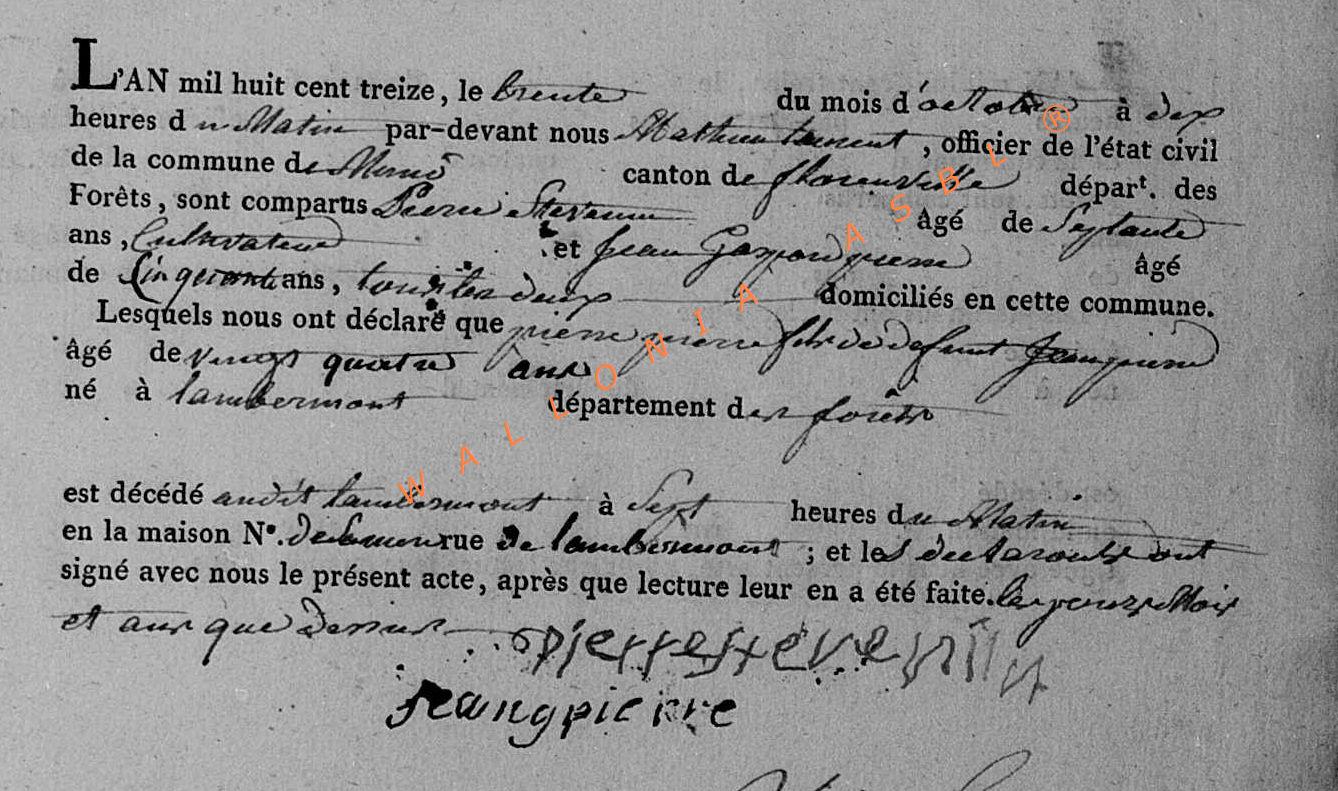 L'AN mil huit cent treize, le trente du mois d'octobre à dix
heures du Matin par-devant nous Mathieu Laurent, officier de l'état civil
de la commune de Muno canton de florenville départ. des
Forêts, sont comparus Pierre Stevenin Agé de Septante
ans, Cultivateur et Jean Gaspard pierre âgé
de Cinquante ans, tous les deux domiciliés en cette commune.
Lesquels nous ont déclaré que pierre pierre fils de defunt Jean pierre
âgé de vingt quatre ans
né à lambermont département des forêts
est décédé audit lambermont à Sept heures du Matin
en la maison N°. rue de lambermont; et les declarants ont
signé avec nous le présent acte, après que lecture leur en a été faite. les jours Mois
et ans que dessus
pierre stevenin
jeangpierre
WALLONIA ASBL ®